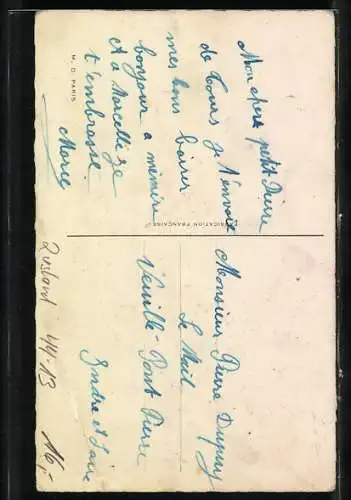 Mon cher petit Pierre
de Tours je t'envoie
mes bons baiser
bonjour a mémère
et a Marcelle je
t'embrasse
M. D. PARIS
FABRICATION FRANÇAISE
Monsieur Pierre Dupuy
Le Mail
Neuille-Pont-Pierre
Indre et Loire
Zustand 44-13 16,-